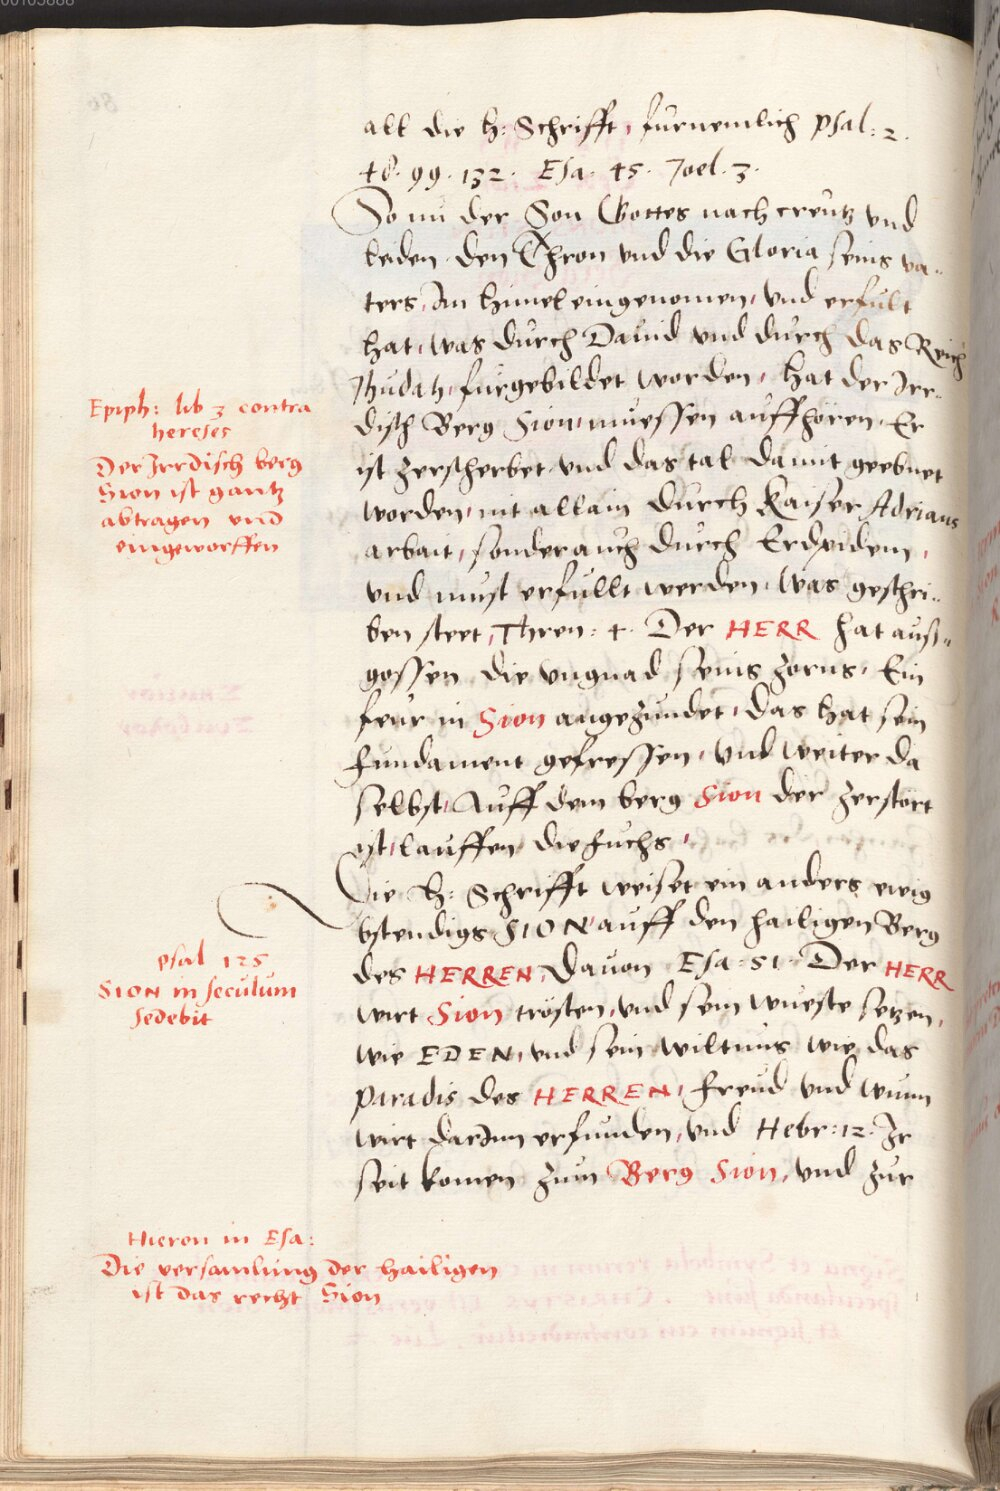 all die h: Schrifft, furnemlich psal: 2.
48. 99. 132. Esa. 45. Joel. 3.
So nu der Son Gottes nach creutz vnd
leden den Thron vnd die Gloria seins va-
ters, An himel eingenomen, vnd erfult
hat, was durch Dauid vnd durch das Reich
Jhudah, furgebildet worden, hat der Irr-
disch Berg Sion muessen auffhören. Er
ist zerscherbet vnd das tal damit geebnet
worden, nit allain durch Kaiser Adrians
arbait, sonder auch durch Erdpidem,
vnd must erfullt werden, was geschri-
ben steet, Thren: 4. Der HERR hat auß-
gossen die vngnad seins zorns, Ein
feur in Sion angezundet, das hat sein
fundament gefressen, vnd weiter da
selbst, Auff dem berg Sion der zerstört
ist, lauffen die fuchs,
Die h: Schrifft weiset ein anders ewig
bstendigs SION auff den hailigen Berg
des HERREN, Dauon Esa: 51. Der HERR
wirt Sion trösten, vnd sein wueste setzen,
wie EDEN, vnd sein wiltnus wie das
paradis des HERREN, freud vnd wunn
wirt darinn erfunden, vnd Hebr: 12. Ir
seit komen zum Berg Sion, vnd zur
Epiph: lib 3 contra
hereses
Der Irrdisch berg
Sion ist gantz
abtragen vnd
eingeworffen
psal 125
SION in seculum
sedebit
Hieron in Esa:
Die versamlung der hailigen
ist das recht Sion